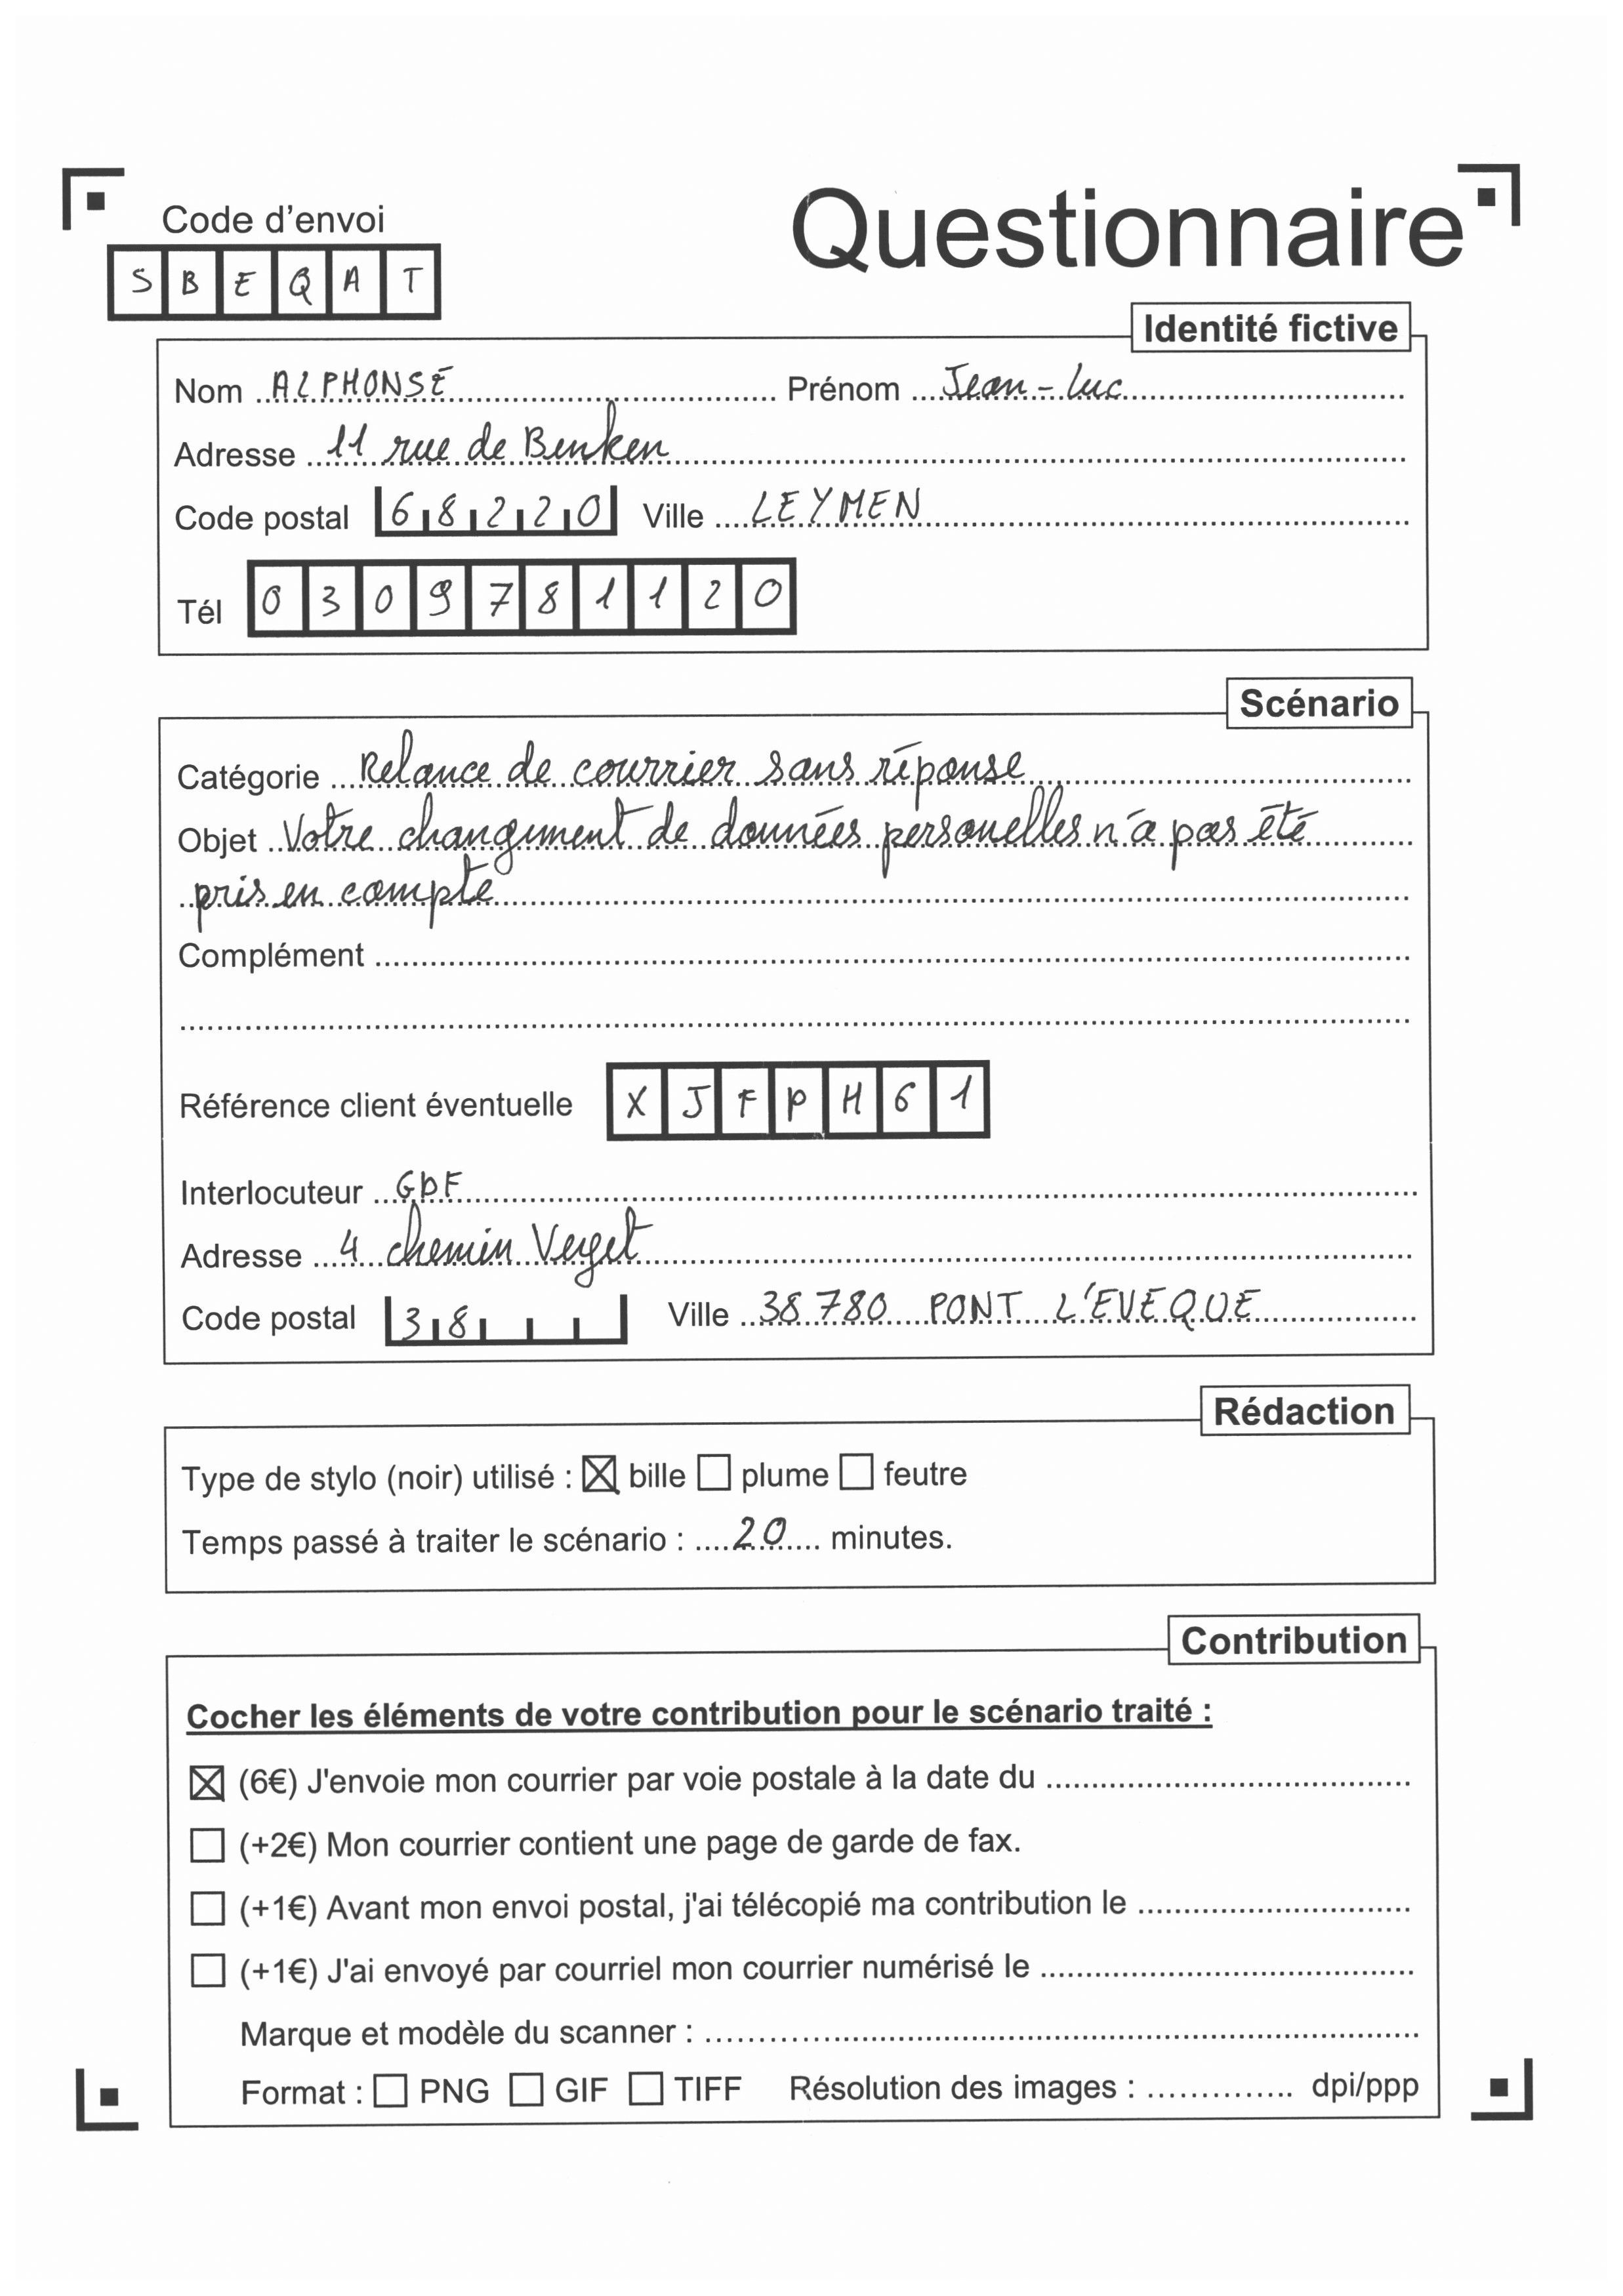 Code d'envoi
Questionnaire
S B E Q A T
Identité fictive
Nom ALPHONSE Prénom Jean-Luc
Adresse 11 rue de Benken
Code postal 68220 Ville LEYMEN
Tél 0309781120
Scénario
Catégorie Relance de courrier sans réponse
Objet Votre changement de données personelles n'a pas été
pris en compte
Complément
Référence client éventuelle X J F P H 6 1
Interlocuteur GDF
Adresse 4 chemin Verget
Code postal 38 Ville 38780 PONT L'EVEQUE
Rédaction
Type de stylo (noir) utilisé : bille plume feutre
Temps passé à traiter le scénario : 20 minutes.
Contribution
Cocher les éléments de votre contribution pour le scénario traité :
(6€) J'envoie mon courrier par voie postale à la date du
(+2€) Mon courrier contient une page de garde de fax.
(+1€) Avant mon envoi postal, j'ai télécopié ma contribution le
(+1€) J'ai envoyé par courriel mon courrier numérisé le
Marque et modèle du scanner :
Format : PNG GIF TIFF Résolution des images : dpi/ppp